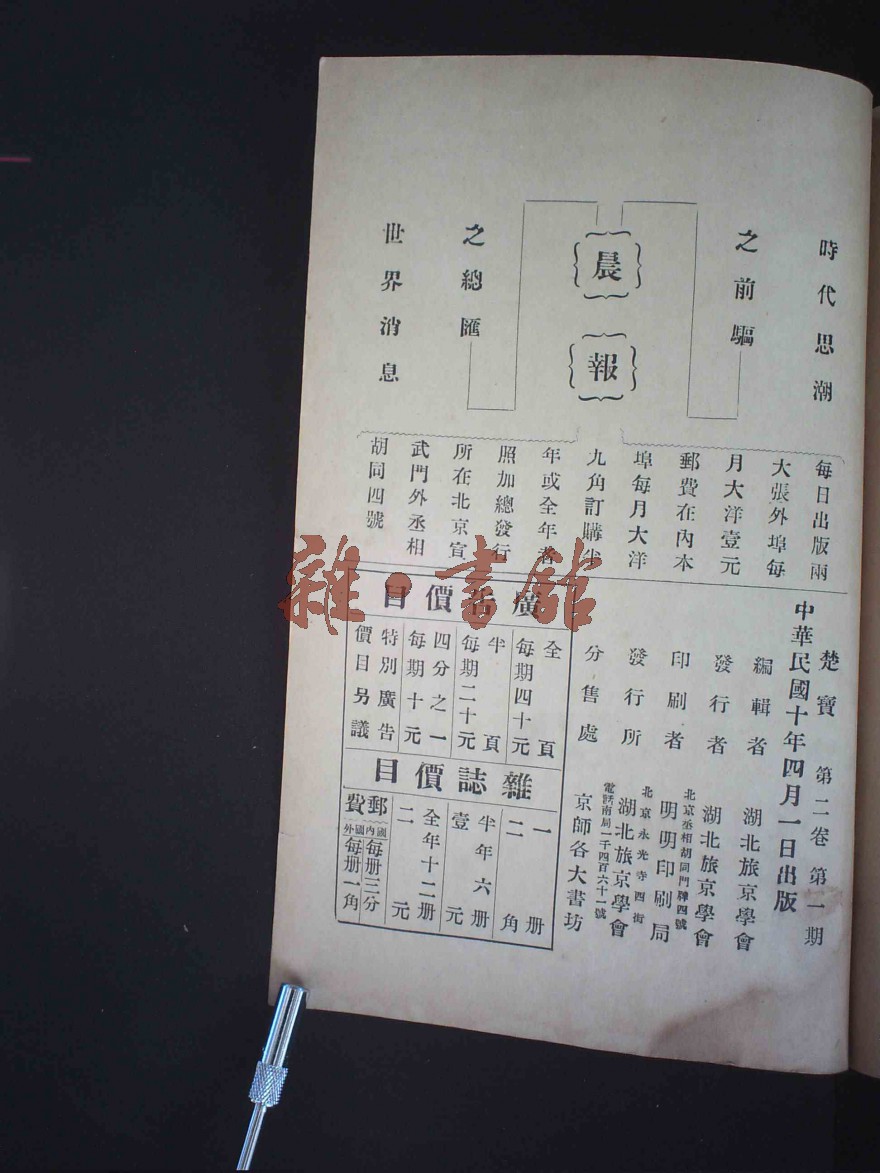 時代思潮
之前驅
晨報
之總匯
世界消息
每日出版兩
大張外埠每
月大洋壹元
郵費在內本
埠每月大洋
九角訂購半
年或全年者
照加總發行
所在北京宣
武門外丞相
胡同四號
楚寶 第二卷 第一期
中華民國十年四月一日出版
編輯者 湖北旅京學會
發行者 湖北旅京學會
印刷者 北京丞相胡同門牌四號
明明印刷局
發行所 北京永光寺西街
湖北旅京學會
電話南局一千四百六十一號
分售處 京師各大書坊
廣告價目
全頁
每期四十元
半頁
每期二十元
四分之一
每期十元
特別廣告
價目另議
雜誌價目
一册
二角
半年六册
壹元
全年十二册
二元
郵費
國內 每册三分
國外 每册一角
雜·書館